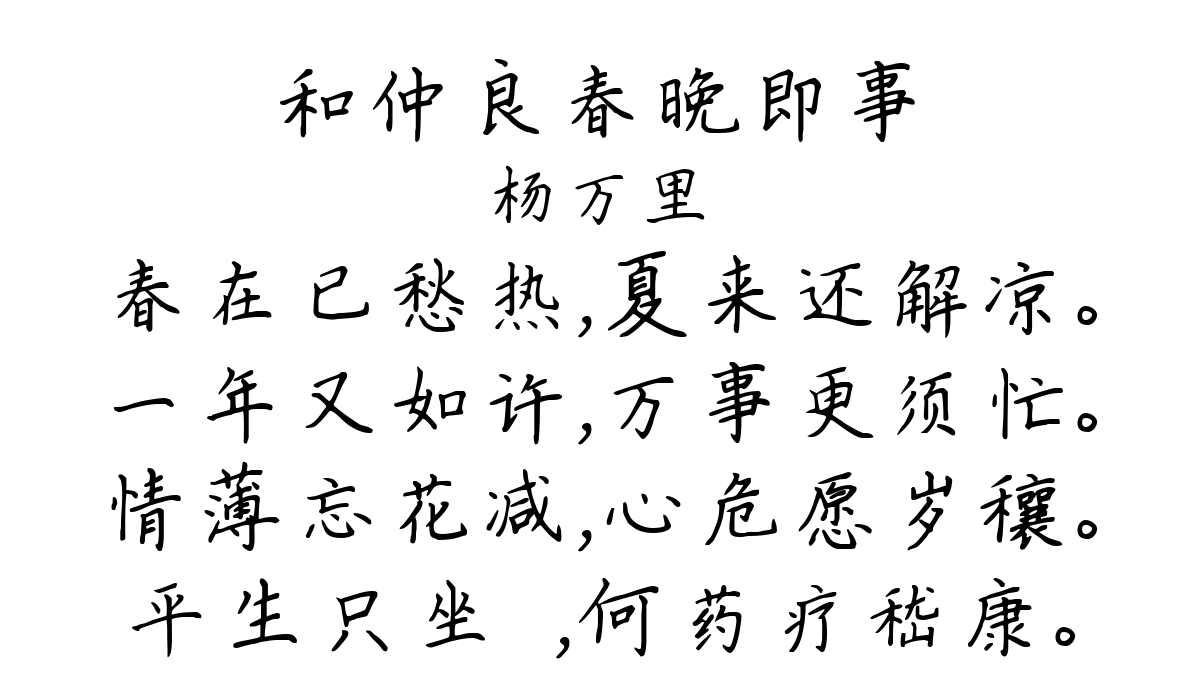 和仲良春晚即事
杨万里
春在已愁热,夏来还解凉。
一年又如许,万事更须忙。
情薄忘花减,心危愿岁穰。
平生只坐 ,何药疗嵇康。